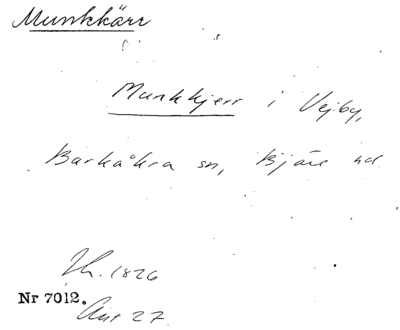 Munkkärr
Munkkjerr i Vejby,
Barkåkra sn, Bjäre hd
Th. 1826
Nr 7012.
Ant 27